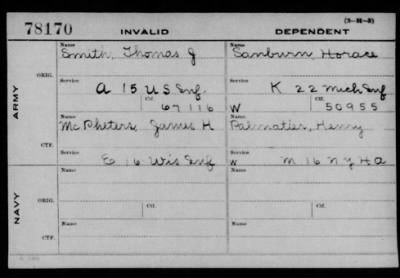 78170 INVALID DEPENDENT (3-M-5)
Name Name
Smith, Thomas J Sanburn, Horace
ORIG. Service Service
A 15 U S Inf K 22 Mich Inf
Ctf. Ctf.
67116 W 50955
ARMY
Name Name
McPheters, James H Palmatier, Henry
CTF. Service Service
E 16 Wis Inf W M 16 N Y H A
NAVY
Name Name
ORIG.
Service Ctf. Service Ctf.
Name Name
CTF.
Service Service